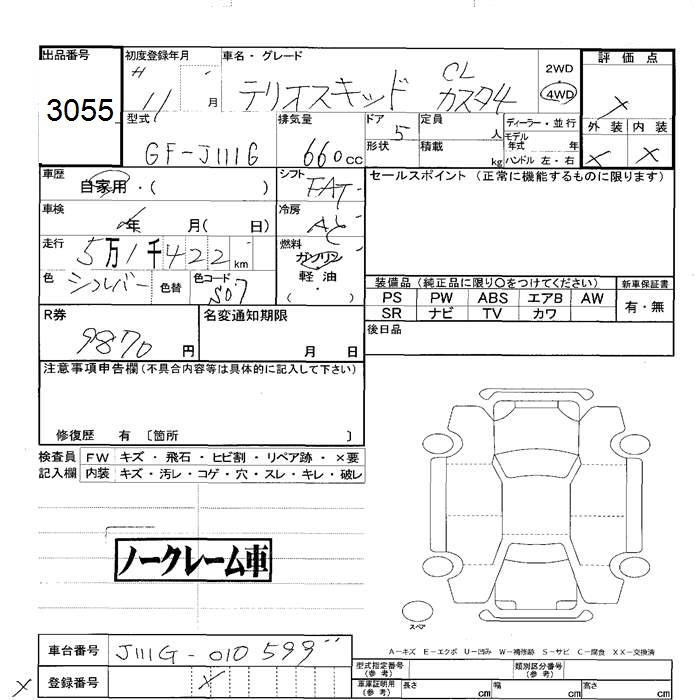 出品番号 初度登録年月 車名・グレード 評価点
3055 H 11 月 テリオスキッド CL カスタム 2WD 4WD
型式 排気量 ドア 定員 人 ディーラー・並行 外装 内装
GF-J111G 660cc 5 形状 積載 kg モデル年式 年 ハンドル 左・右
車歴 自家用・( ) シフト FAT セールスポイント (正常に機能するものに限ります)
車検 年 月( 日) 冷房 AC
走行 5万1千422km 燃料 ガソリン 軽油 ( ・ )
色 シルバー 色替 色コード S07
装備品 (純正品に限り○をつけてください) 新車保証書
PS PW ABS エアB AW 有・無
SR ナビ TV カワ
R券 9870円 名変通知期限 月 日 後日品
注意事項申告欄(不具合内容等は具体的に記入して下さい)
修復歴 有 〔箇所 〕
検査員 FW キズ・飛石・ヒビ割・リペア跡・×要
記入欄 内装 キズ・汚レ・コゲ・穴・スレ・キレ・破レ
ノークレーム車
スペア
A-キズ E-エクボ U-凹み W-補修跡 S-サビ C-腐食 XX-交換済
車台番号 J111G-010599
登録番号 X
型式指定番号(参考) 類別区分番号(参考)
車庫証明用(参考) 長さ cm 幅 cm 高さ cm